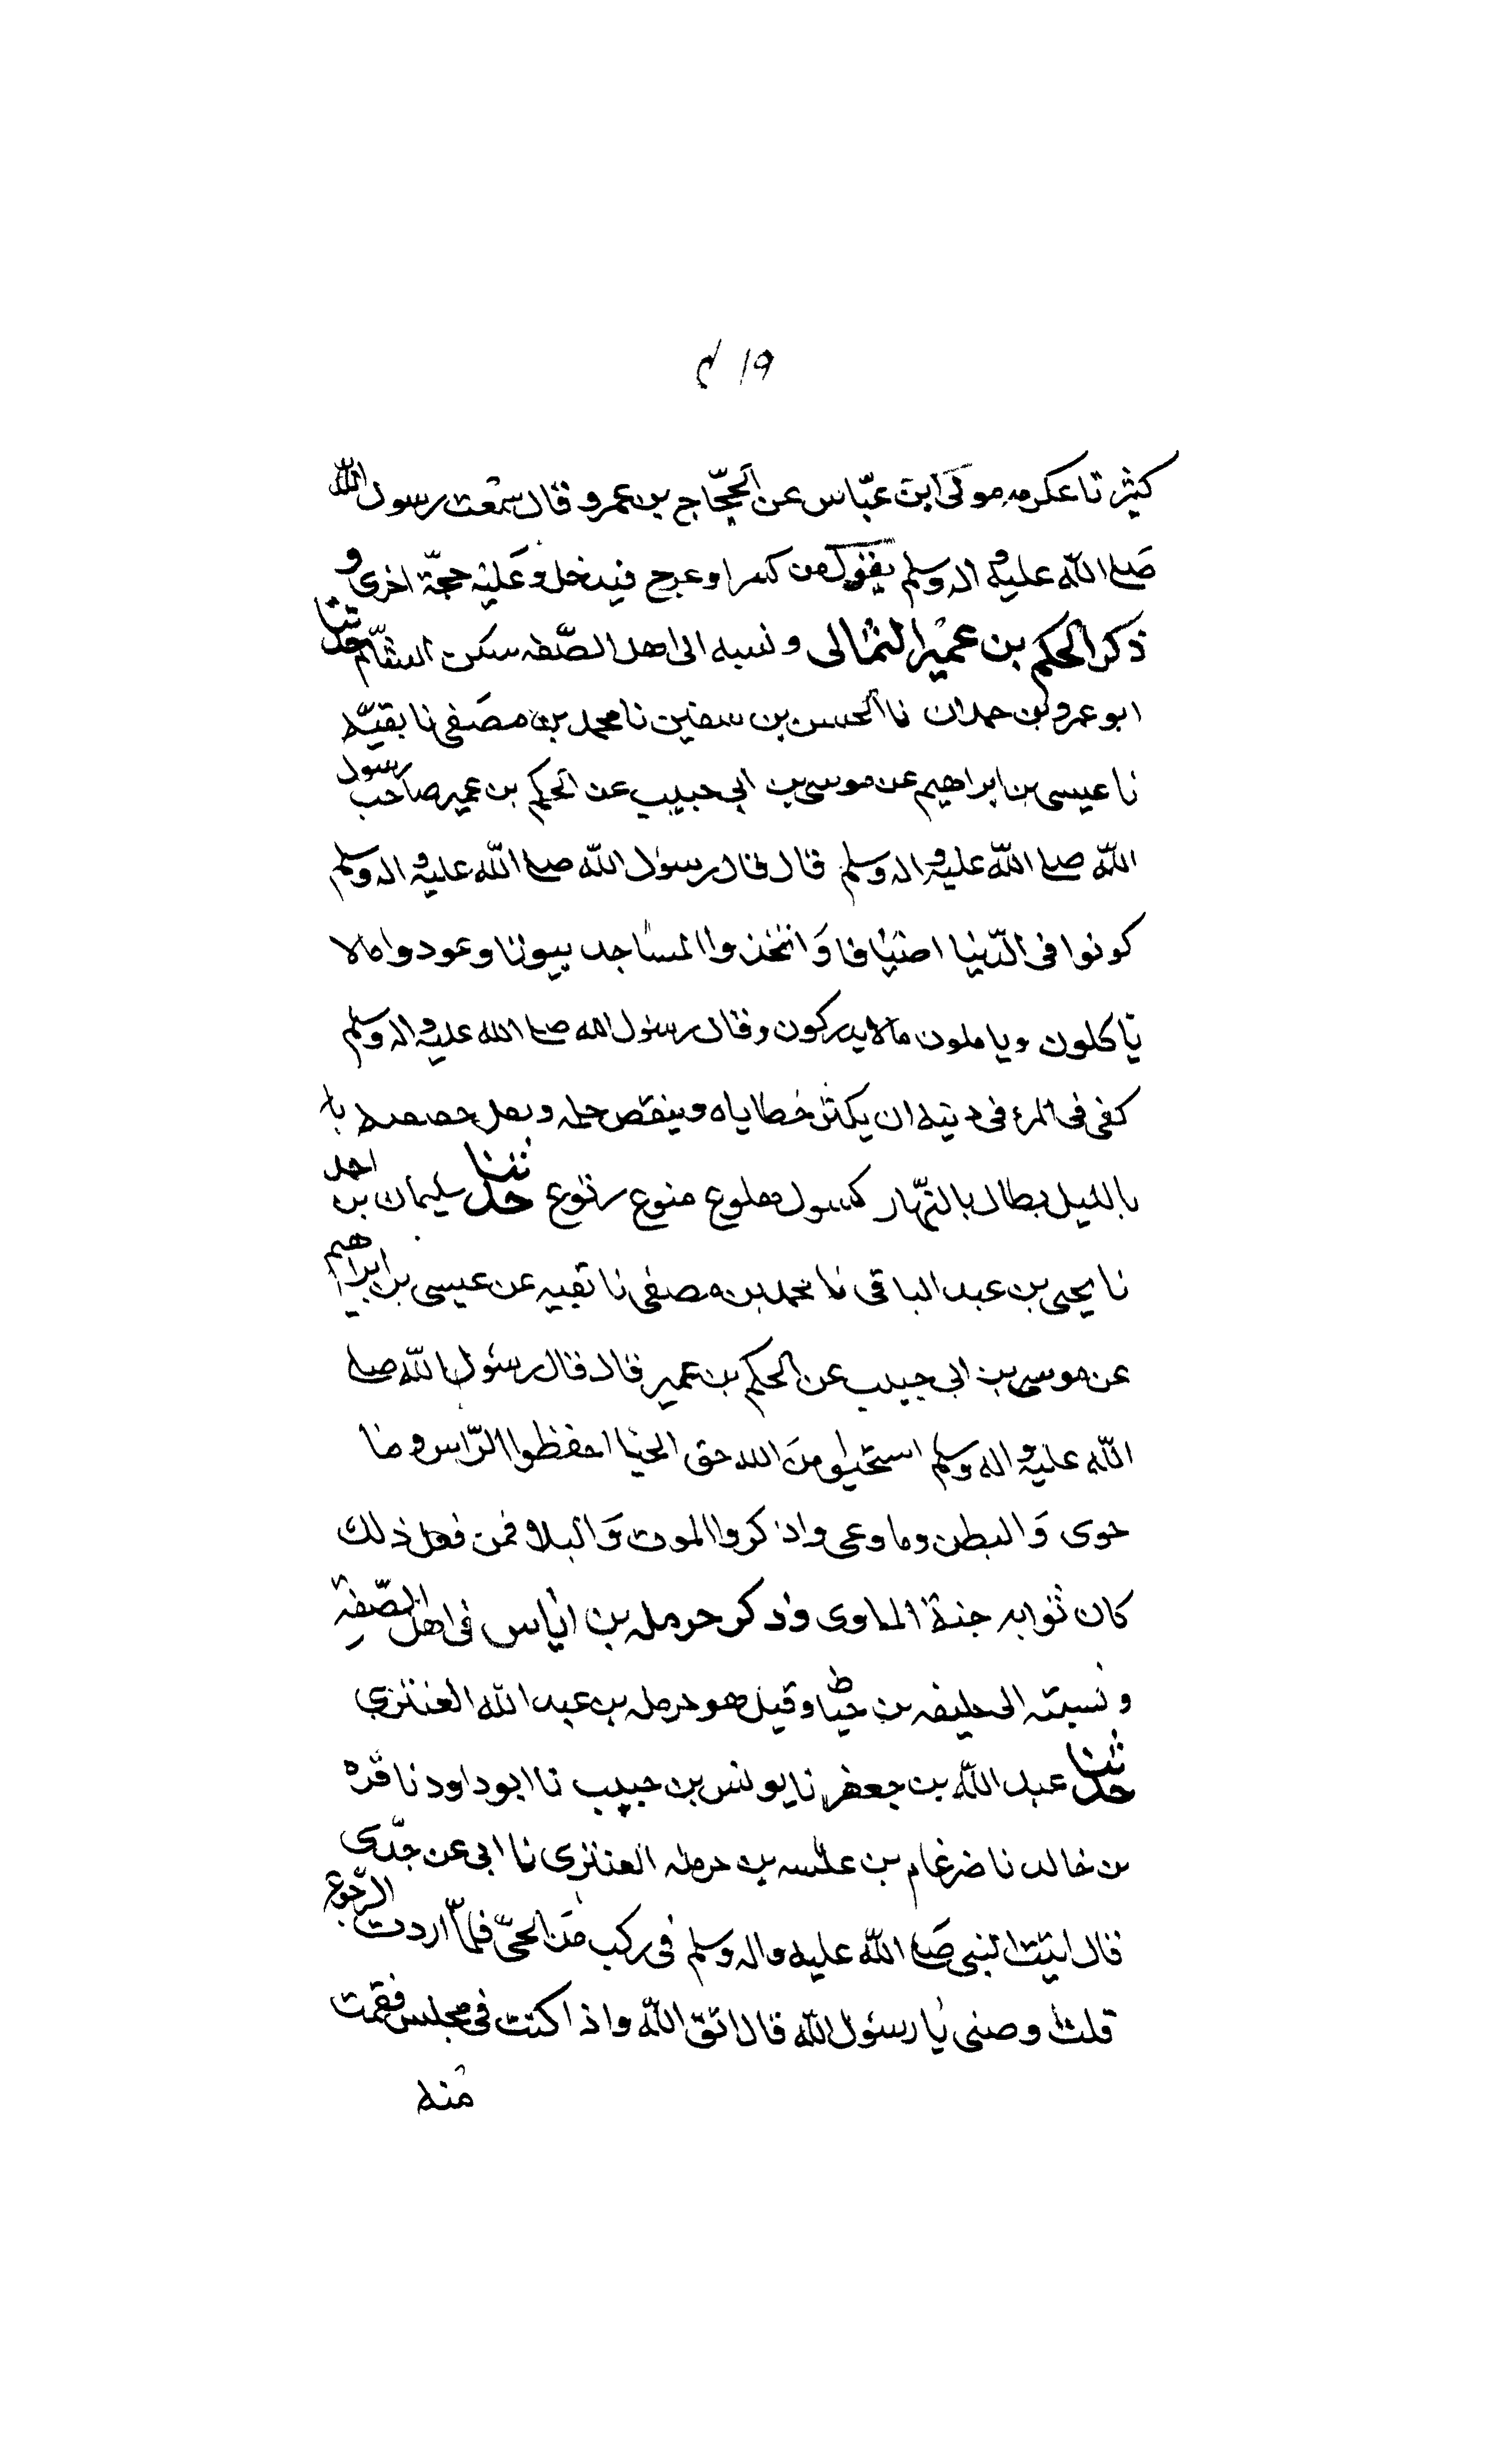 ١٩
كثير نا عكرمه مولى ابن عبّاس عن الحجّاج بن عمرو قال سمعت رسول الله
صلى الله عليه واله وسلم يقول من كسر او عرج فقد حل وعليه حجّة اخرى و
ذكر الحكم بن عمير الثمالى ونسبه الى اهل الصّفه سكن الشام حدثنا
ابو عمرو بن حمدان نا الحسن بن سفين نا محمد بن مصفى نا بقيّه
نا عيسى بن ابراهيم عن موسى بن ابى حبيب عن الحكم بن عمير صاحب رسول
الله صلى الله عليه واله وسلم قال قال رسول الله صلى الله عليه واله وسلم
كونوا فى الدّنيا اضيافا وَاتخذوا المساجد بيوتا وعودوا مالا
ياكلون وياملون مالا يدركون وقال رسول الله صلى الله عليه واله وسلم
كفى فى المرء فى دينه ان يكثر خطاياه وينقص حلمه و
بالليل بطال بالنّهار كسول هلوع منوع رتوع حدثنا سليمان بن احمد
نا يحيى بن عبد الباقى نا محمد بن مصفى نا بقيه عن عيسى بن ابراهيم
عن موسى بن ابى حبيب عن الحكم بن عمير قال قال رسول الله صلى
الله عليه واله وسلم استحيوا من الله حق الحيا احفظوا الرّاس وما
حوى وَالبطن وما وعى واذكروا الموت وَالبلا فمن فعل ذلك
كان ثوابه جنة الماوى وذكر حرمله بن اياس فى اهل الصّفة
ونسبته الى خليفه بن خياط وقيل هو حرمله بن عبد الله العنبرى
حدثنا عبد الله بن جعفر نا يونس بن حبيب نا ابو داود نا قره
بن خالد نا ضرغام بن عليبه بن حرمله العنبرى نا ابى عن جدّى
قال اتيت النبى صلى الله عليه واله وسلم فى ركب من الحىّ فلمّا اردت الرّجوع
قلت اوصنى يا رسول الله قال اتق الله واذا كنت فى مجلس فقمت
منه